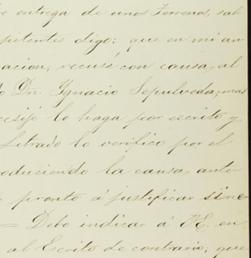 entrega de unos terrenos, sal
petentes digo: que en mi an
acion, recusé con causa al
Dn. Ygnacio Sepulveda, mas
lo haga por escrito y
Letrado lo verifico por el
oduciendo la causa, ante
pronto á justificar si ne
= Debo indicar á V.E. en
al Escrito de contrario, que